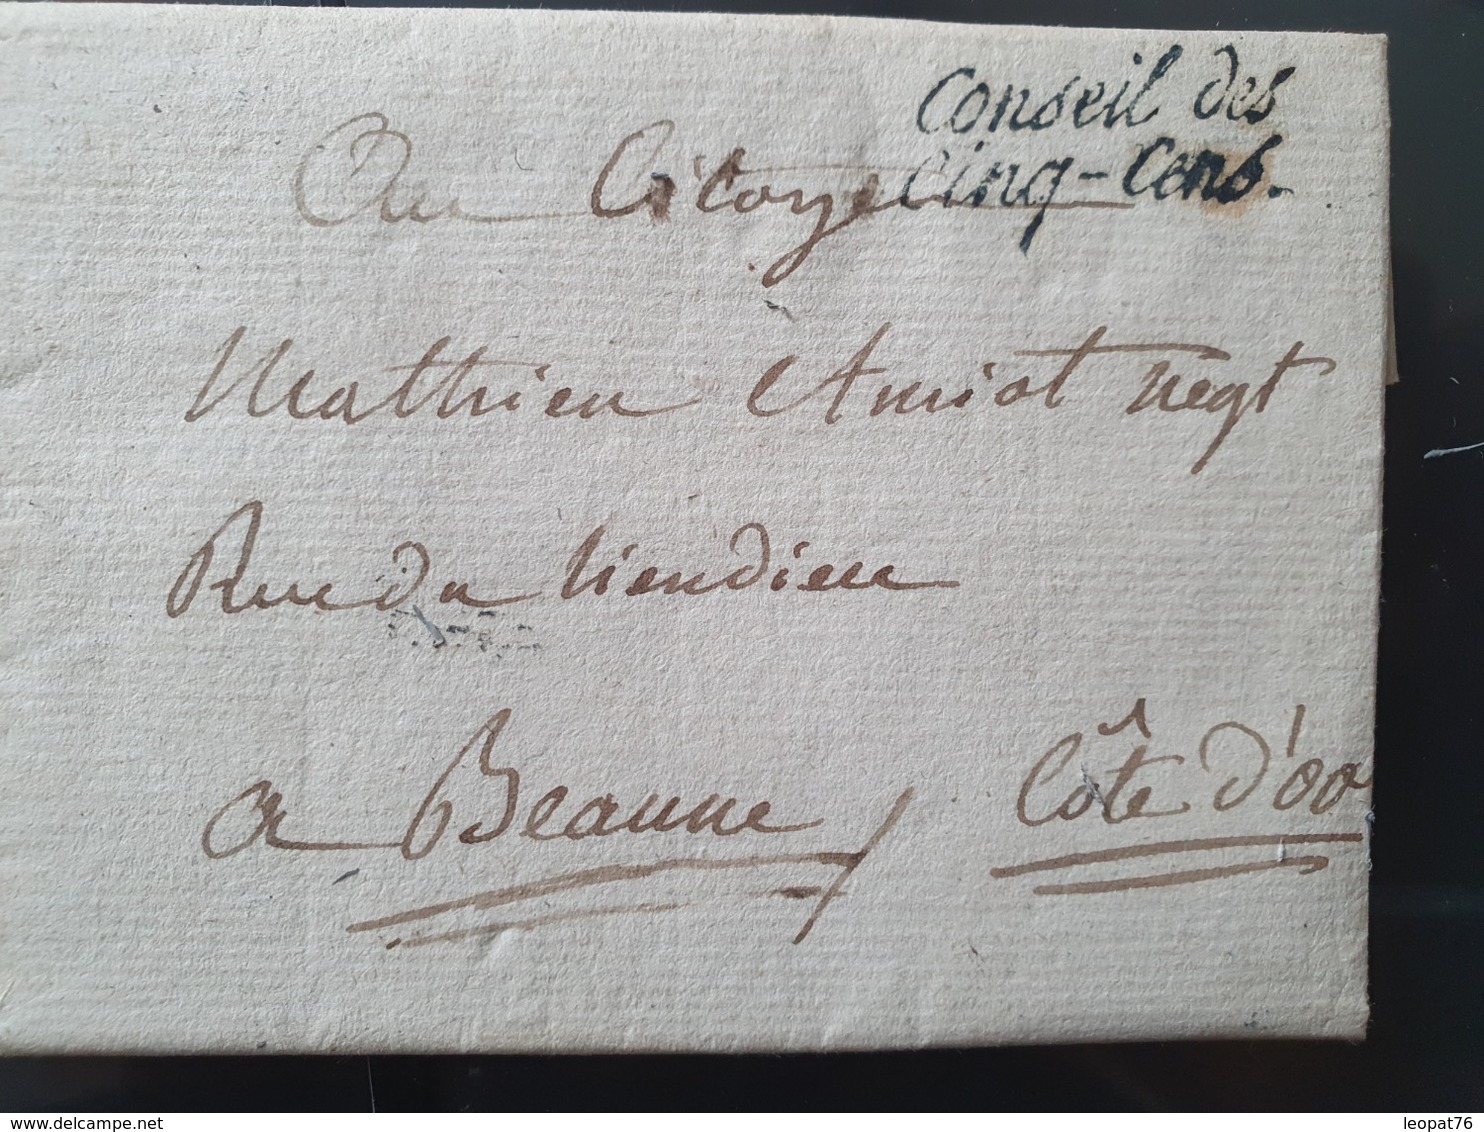 Conseil des
Cinq-Cens.
Au Citoyen
Mathieu Amiot negt
Rue du lieudieu
a Beaune, Côte d'or
www.delcampe.net
leopat76